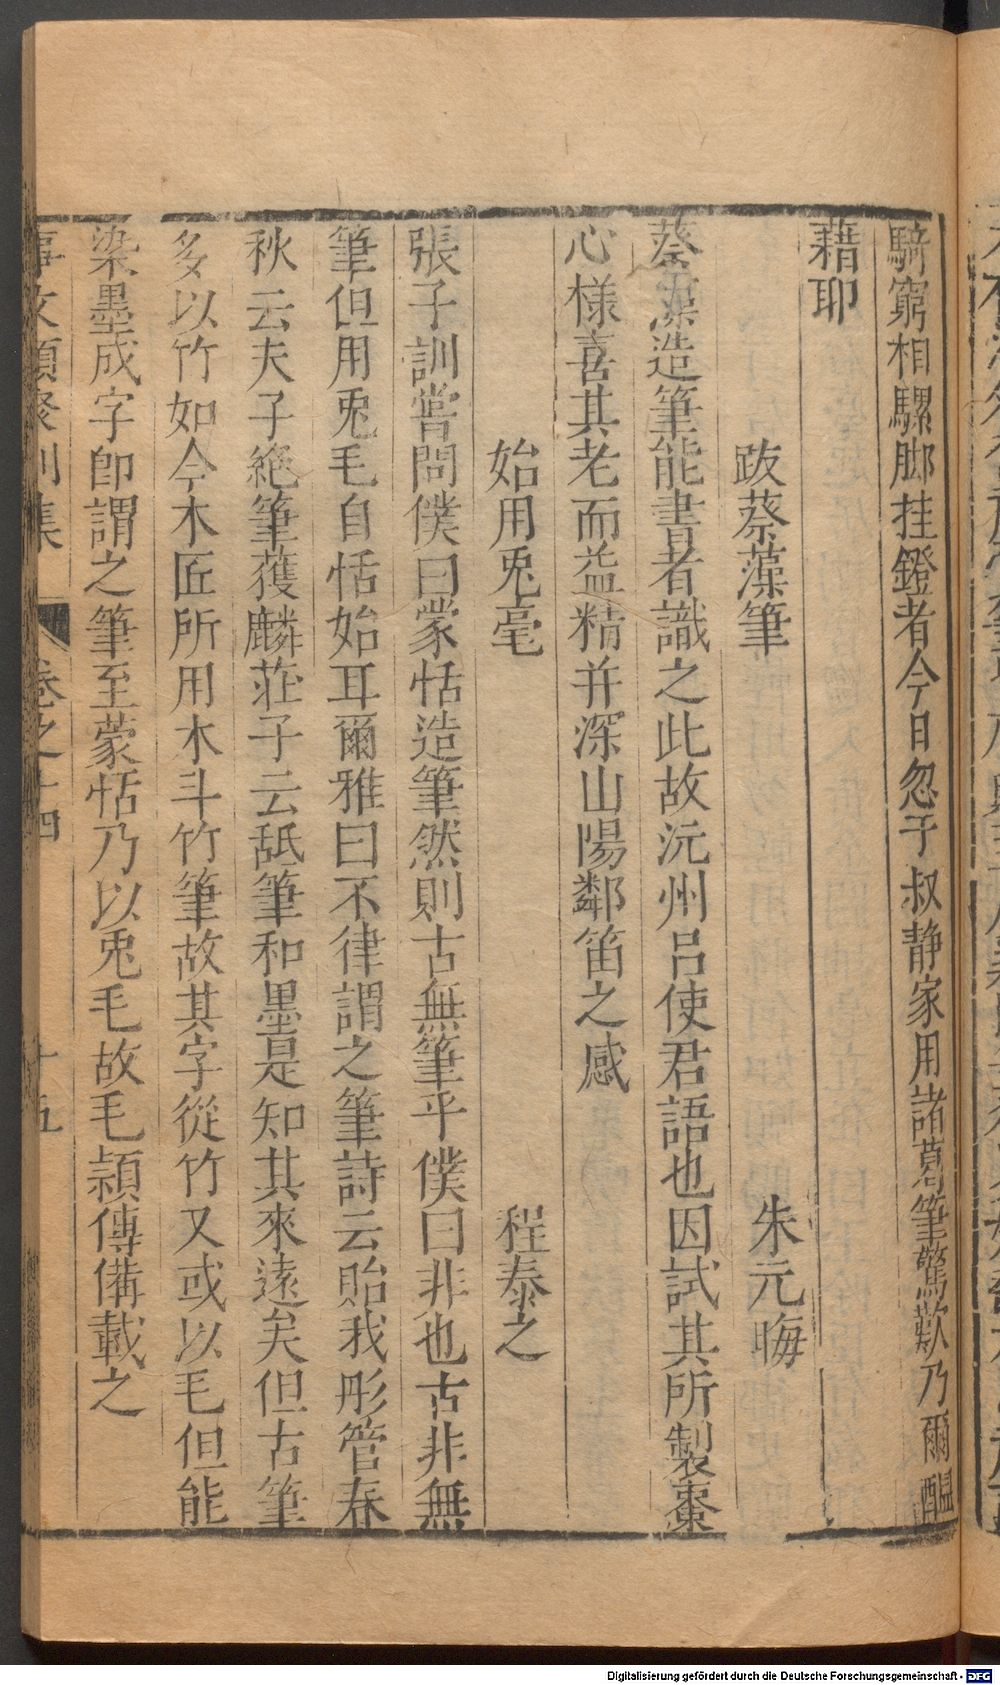 騎窮相騾脚挂鐙者今日忽于叔靜家用諸葛筆驚歎乃爾醞
藉耶
跋蔡藻筆 朱元晦
蔡藻造筆能書者識之此故沅州呂使君語也因試其所製棗
心様喜其老而益精并深山陽鄰笛之感
始用兎毫 程泰之
張子訓嘗問僕曰蒙恬造筆然則古無筆乎僕曰非也古非無
筆但用兎毛自恬始耳爾雅曰不律謂之筆詩云貽我彤管春
秋云夫子絕筆獲麟莊子云舐筆和墨是知其來遠矣但古筆
多以竹如今木匠所用木斗竹筆故其字從竹又或以毛但能
染墨成字卽謂之筆至蒙恬乃以兎毛故毛頴傳備載之
事文類聚別集 卷之十四 十五
Digitalisierung gefördert durch die Deutsche Forschungsgemeinschaft - DFG